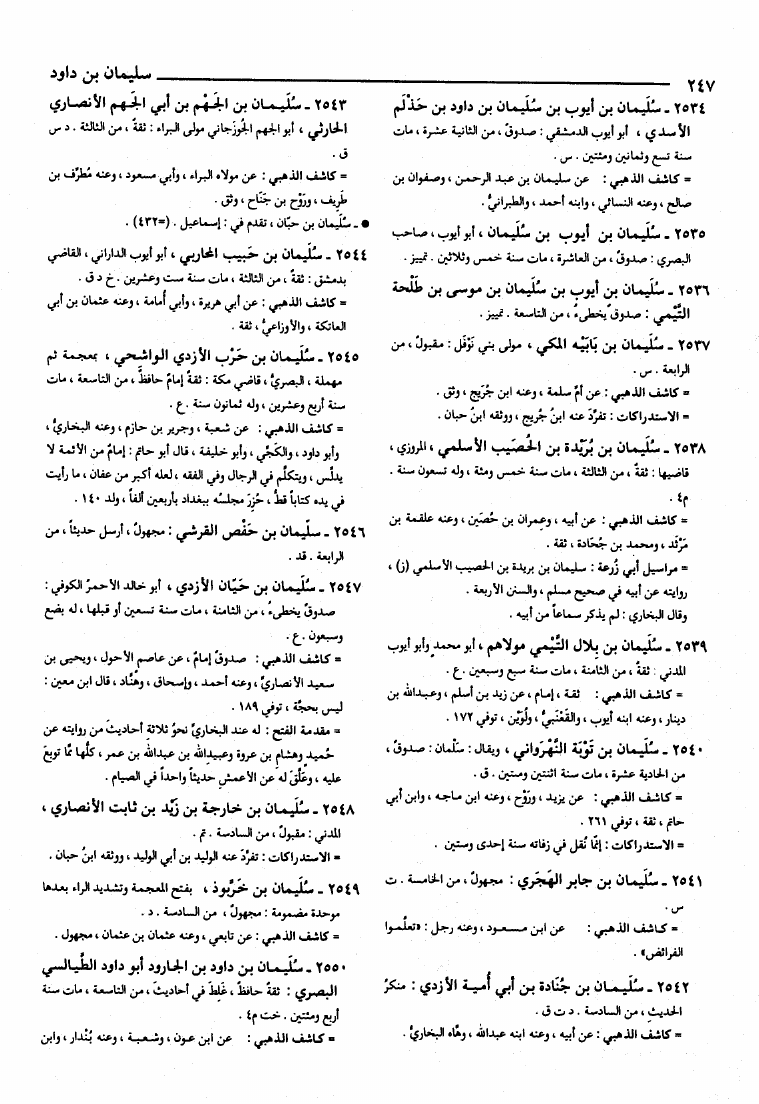 ٢٤٧ سليمان بن داود
٢٥٣٤ ـ سُلَيمان بن أيوب بن سُلَيمان بن داود بن حَذْلَم
الأسدي ، أبو أيوب الدمشقي : صدوقٌ ، من الثانية عشرة ، مات
سنة تسع وثمانين ومئتين . س .
= كاشف الذهبي : عن سليمان بن عبد الرحمن ، وصفوان بن
صالح ، وعنه النسائي ، وابنه أحمد ، والطبرانيُّ .
٢٥٣٥ ـ سُلَيمان بن أيوب بن سُلَيمان ، أبو أيوب ، صاحب
البصري : صدوقٌ ، من العاشرة ، مات سنة خمس وثلاثين . تمييز .
٢٥٣٦ ـ سُلَيمان بن أيوب بن سُلَيمان بن موسى بن طَلْحة
التَّيْمي : صدوقٌ يخطىءُ ، من التاسعة . تمييز .
٢٥٣٧ ـ سُلَيمان بن بَابَيْه المكي ، مولى بني نَوْفَل : مقبولٌ ، من
الرابعة . س .
= كاشف الذهبي : عن أمّ سلمة ، وعنه ابن جُرَيج ، وثق .
= الاستدراكات : تفرَّد عنه ابنُ جُريج ، ووثقه ابنُ حبان .
٢٥٣٨ ـ سُلَيمان بن بُرَيْدة بن الحُصَيب الأسلمي ، المروزي ،
قاضيها : ثقةٌ ، من الثالثة ، مات سنة خمس ومئة ، وله تسعون سنة .
م٤ .
= كاشف الذهبي : عن أبيه ، وعِمران بن حُصَين ، وعنه علقمة بن
مَرْثَد ، ومحمد بن جُحَادة ، ثقة .
= مراسيل أبي زُرعة : سليمان بن بريدة بن الحصيب الأسلمي (ز) ،
روايته عن أبيه في صحيح مسلم ، والسنن الأربعة .
وقال البخاري : لم يذكر سماعاً من أبيه .
٢٥٣٩ ـ سُلَيمان بن بلال التَّيْمي مولاهم ، أبو محمد وأبو أيوب
المدني : ثقةٌ ، من الثامنة ، مات سنة سبع وسبعين . ع .
= كاشف الذهبي : ثقة ، إمام ، عن زيد بن أسلم ، وعبدالله بن
دينار ، وعنه ابنه أيوب ، والقَعْنَبيُّ ، ولُوَيْن ، توفي ١٧٢ .
٢٥٤٠ ـ سُلَيمان بن تَوْبَة النَّهْرواني ، ويقال : سَلْمان : صدوقٌ ،
من الحادية عشرة ، مات سنة اثنتين وستين . ق .
= كاشف الذهبي : عن يزيد ، ورَوْح ، وعنه ابن ماجه ، وابن أبي
حاتم ، ثقة ، توفي ٢٦١ .
= الاستدراكات : إنَّما نُقل في زفاته سنة إحدى وستين .
٢٥٤١ ـ سُلَيمان بن جابر الهَجَري : مجهولٌ ، من الخامسة . ت
س .
= كاشف الذهبي : عن ابن مسعود ، وعنه رجل : «تعلَّموا
الفرائض» .
٢٥٤٢ ـ سُلَيمان بن جُنَادة بن أبي أُمية الأزدي : منكرُ
الحديثِ ، من السادسة . د ت ق .
= كاشف الذهبي : عن أبيه ، وعنه ابنه عبدالله ، وهَّاه البخاريُّ .
٢٥٤٣ ـ سُلَيمان بن الجَهْم بن أبي الجَهم الأنصاري
الحارثي ، أبو الجهم الجُوزجاني مولى البراء : ثقةٌ ، من الثالثة . د س
ق .
= كاشف الذهبي : عن مولاه البراء ، وأبي مسعود ، وعنه مُطرِّف بن
طَرِيف ، ورَوْح بن جَنَاح ، وثق .
● ـ سُلَيمان بن حبّان ، تقدم في : إسماعيل . (=٤٣٢) .
٢٥٤٤ ـ سُلَيمان بن حَبيب المحاربي ، أبو أيوب الداراني ، القاضي
بدمشق : ثقةٌ ، من الثالثة ، مات سنة ست وعشرين . خ د ق .
= كاشف الذهبي : عن أبي هريرة ، وأبي أمامة ، وعنه عثمان بن أبي
العاتكة ، والأوزاعيُّ ، ثقة .
٢٥٤٥ ـ سُلَيمان بن حَرْب الأزدي الواشحي ، بمعجمة ثم
مهملة ، البصريُّ ، قاضي مكة : ثقةٌ إمامٌ حافظٌ ، من التاسعة ، مات
سنة أربع وعشرين ، وله ثمانون سنة . ع .
= كاشف الذهبي : عن شعبة ، وجرير بن حازم ، وعنه البخاريُّ ،
وأبو داود ، والكَجِّي ، وأبو خليفة ، قال أبو حاتم : إمامٌ من الأئمة لا
يدلِّس ، ويتكلَّم في الرجال وفي الفقه ، لعله أكبر من عفان ، ما رأيت
في يده كتاباً قطُّ ، حُزِرَ مجلسُه ببغداد بأربعين ألفاً ، ولد ١٤٠ .
٢٥٤٦ ـ سلَيمان بن حَفْص القرشي : مجهولٌ ، أرسل حديثاً ، من
الرابعة . قد .
٢٥٤٧ ـ سُلَيمان بن حَيَّان الأزدي ، أبو خالد الأحمرُ الكوفي :
صدوقٌ يخطىءُ ، من الثامنة ، مات سنة تسعين أو قبلها ، له بضع
وسبعون . ع .
= كاشف الذهبي : صدوقٌ إمامٌ ، عن عاصم الأحول ، ويحيى بن
سعيد الأنصاريِّ ، وعنه أحمد ، وإسحاق ، وهَنَّاد ، قال ابن معين :
ليس بحجَّة ، توفي ١٨٩ .
= مقدمة الفتح : له عند البخاريِّ نحوُ ثلاثةِ أحاديثَ من روايته عن
حُميد وهشام بن عروة وعبيدالله بن عبدالله بن عمر ، كلُّها مما توبعَ
عليه ، وعَلَّق له عن الأعمش حديثاً واحداً في الصيام .
٢٥٤٨ ـ سُلَيمان بن خارجة بن زَيْد بن ثابت الأنصاري ،
المدني : مقبولٌ ، من السادسة . تم .
= الاستدراكات : تفرَّدَ عنه الوليد بن أبي الوليد ، ووثقه ابنُ حبان .
٢٥٤٩ ـ سُلَيمان بن خَرَّبوذ ، بفتح المعجمة وتشديد الراء بعدها
موحدة مضمومة : مجهولٌ ، من السادسة . د .
= كاشف الذهبي : عن تابعي ، وعنه عثمان بن عثمان ، مجهول .
٢٥٥٠ ـ سُلَيمان بن داود بن الجارود أبو داود الطَّيالسي
البصري : ثقةٌ حافظٌ ، غَلِطَ في أحاديثَ ، من التاسعة ، مات سنة
أربع ومئتين . خت م٤ .
= كاشف الذهبي : عن ابن عون ، وشعبة ، وعنه بُنْدار ، وابن